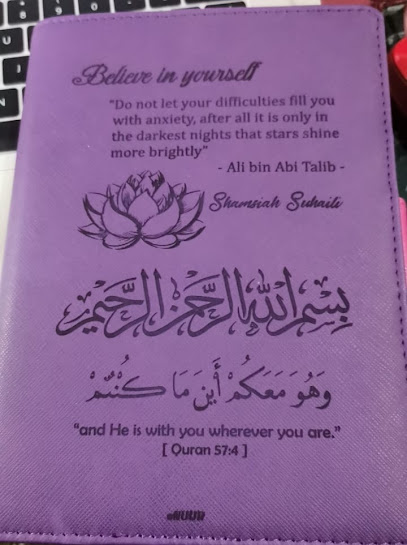 Believe in yourself
"Do not let your difficulties fill you
with anxiety, after all it is only in
the darkest nights that stars shine
more brightly"
- Ali bin Abi Talib -
Shamsiah Suhaiti
بِسْمِ اللهِ الرَّحْمٰنِ الرَّحِيْمِ
وَهُوَ مَعَكُمْ أَيْنَ مَا كُنْتُمْ
"and He is with you wherever you are."
[ Quran 57:4 ]